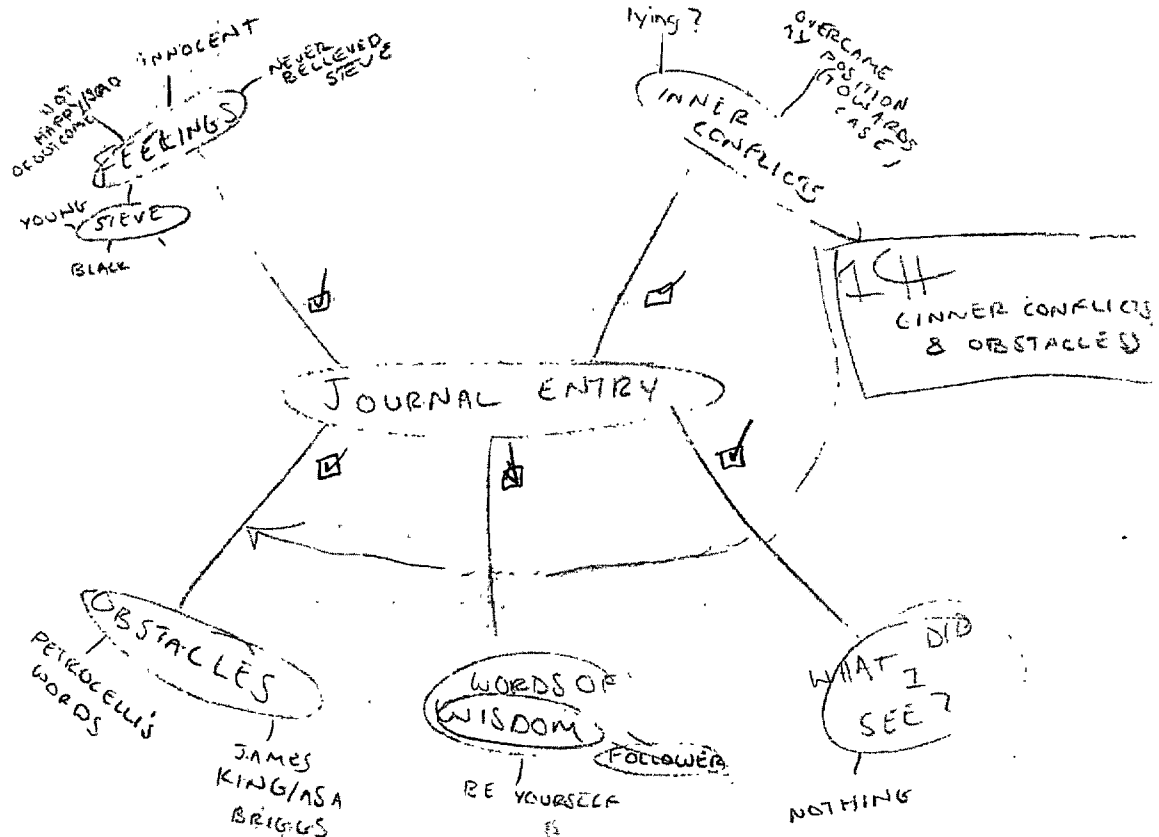 INNOCENT
NEVER
BELIEVED
STEVE
NOT
HAPPY/SAD
OF OUTCOME
FEELINGS
YOUNG
STEVE
BLACK
lying?
OVERCAME
POSITION
(TOWARDS
CASE)
INNER
CONFLICTS
(INNER CONFLICTS
& OBSTACLES)
JOURNAL ENTRY
OBSTACLES
PETROCELLI'S
WORDS
JAMES
KING/ASA
BRIGGS
WORDS OF
WISDOM
FOLLOWER
BE YOURSELF
WHAT DID
I
SEE?
NOTHING